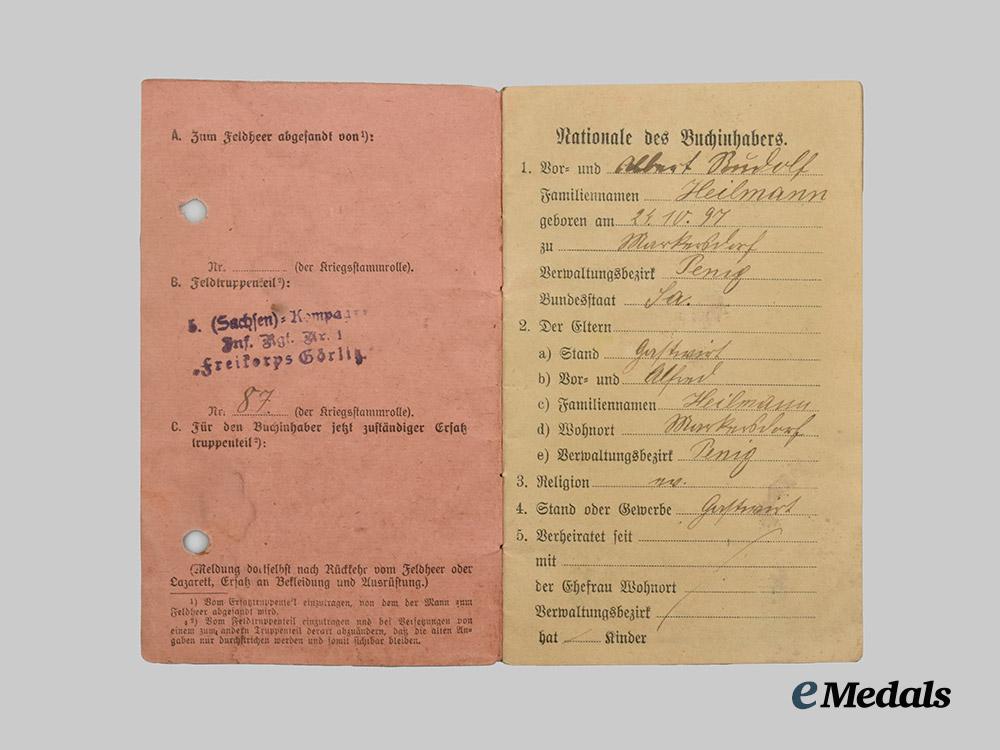 A. Zum Feldheer abgesandt von¹):
Nr. (der Kriegsstammrolle).
B. Feldtruppenteil²):
5. (Sachsen)-Kompa
Inf. Rgt. Nr. 1
"Freikorps Görlitz"
Nr. 87. (der Kriegsstammrolle).
C. Für den Buchinhaber jetzt zuständiger Ersatz
truppenteil²):
(Meldung daselbst nach Rückkehr vom Feldheer oder
Lazarett, Ersatz an Bekleidung und Ausrüstung.)
¹) Vom Ersatztruppenteil einzutragen, von dem der Mann zum
Feldheer abgesandt wird.
²) Vom Feldtruppenteil einzutragen und bei Versetzungen von
einem zum andern Truppenteil derart abzuändern, daß die alten An-
gaben nur durchstrichen werden und somit sichtbar bleiben.
Nationale des Buchinhabers.
1. Vor- und Albert Rudolf
Familiennamen Heilmann
geboren am 24.10.97
zu Markersdorf
Verwaltungsbezirk Penig
Bundesstaat Sa.
2. Der Eltern
a) Stand Gastwirt
b) Vor- und Alfred
c) Familiennamen Heilmann
d) Wohnort Markersdorf
e) Verwaltungsbezirk Penig
3. Religion ev.
4. Stand oder Gewerbe Gastwirt
5. Verheiratet seit
mit
der Ehefrau Wohnort
Verwaltungsbezirk
hat — Kinder
eMedals